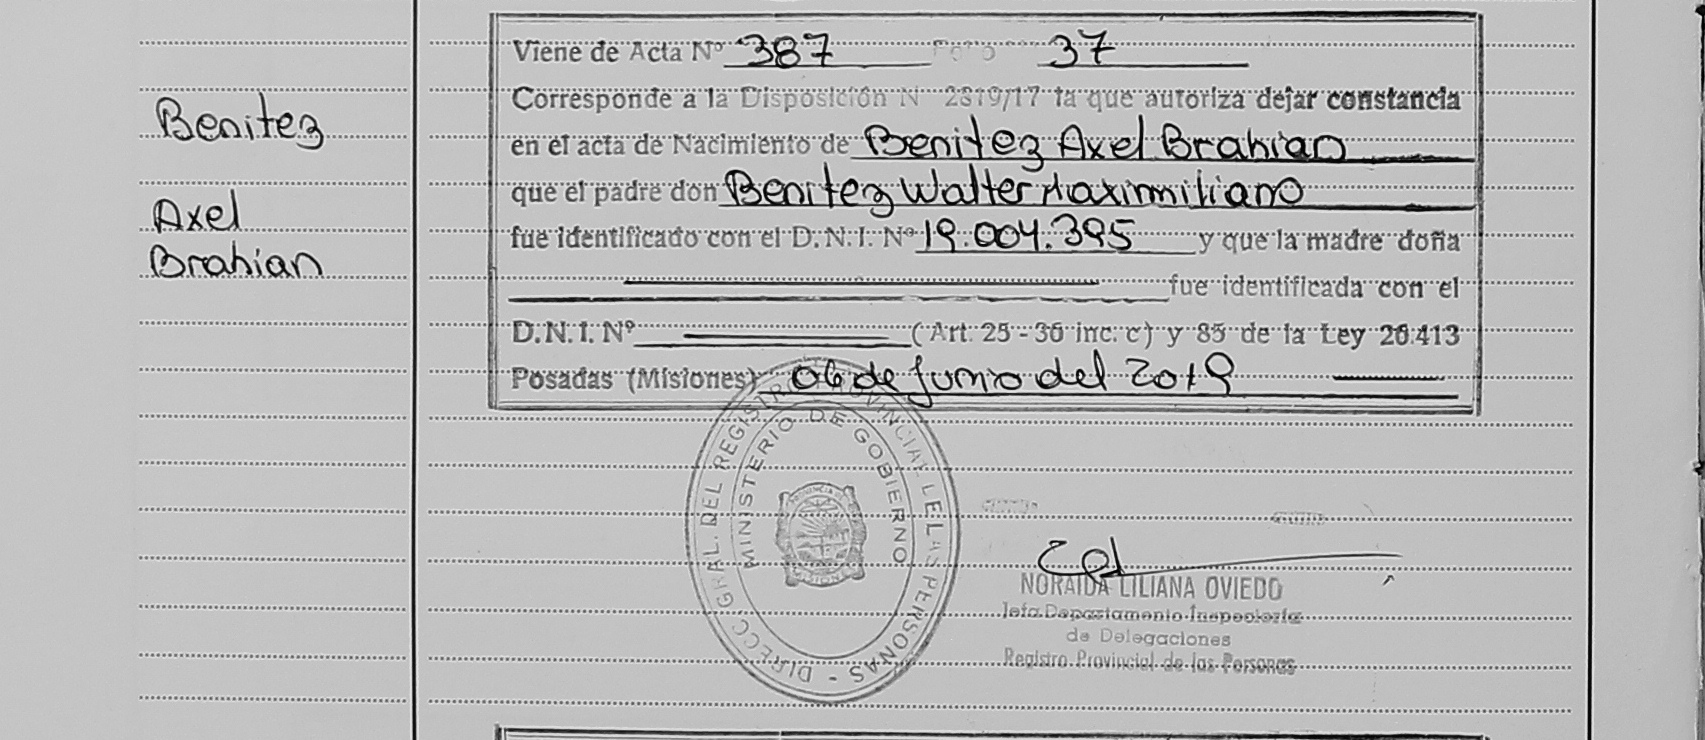 Benitez
Axel
Brahian
Viene de Acta Nº 387 Folio 37
Corresponde a la Disposición Nº 2819/17 la que autoriza dejar constancia
en el acta de Nacimiento de Benitez Axel Brahian
que el padre don Benitez Walter Maximiliano
fue identificado con el D.N.I. Nº 19.004.395 y que la madre doña
fue identificada con el
D.N.I. Nº (Art. 25 - 36 inc. c) y 85 de la Ley 26.413
Posadas (Misiones) 06 de Junio del 2019
DIRECC. GRAL. DEL REGISTRO PROVINCIAL DE LAS PERSONAS -
MINISTERIO DE GOBIERNO
PROVINCIA DE
MISIONES
NORAIDA LILIANA OVIEDO
Jefa Departamento Inspectoría
de Delegaciones
Registro Provincial de las Personas